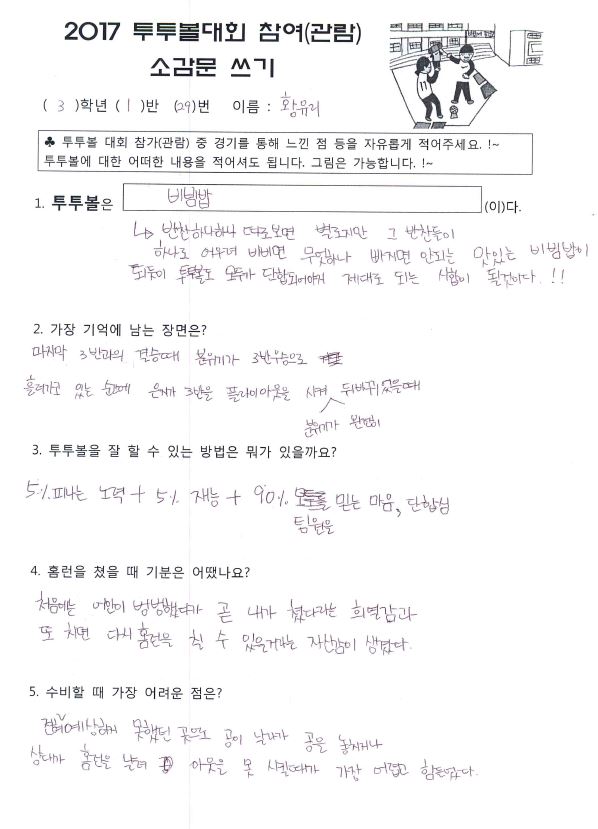 2017 투투볼대회 참여(관람)
소감문 쓰기
( 3 )학년 ( 1 )반 (29)번 이름 : 황유리
♣ 투투볼 대회 참가(관람) 중 경기를 통해 느낀 점 등을 자유롭게 적어주세요. !~
투투볼에 대한 어떠한 내용을 적어셔도 됩니다. 그림은 가능합니다. !~
1. 투투볼은 비빔밥 (이)다.
↳ 반찬하나하나 따로보면 별로지만 그 반찬들이
하나로 어우려 비비면 무엇하나 빠지면 안되는 맛있는 비빔밥이
되듯이 투투볼도 모두가 단합되어야지 제대로 되는 시합이 될것이다. !!
2. 가장 기억에 남는 장면은?
마지막 3반과의 결승때 분위기가 3반우승으로
흘러가고 있는 순간에 은지가 3반을 플라이아웃을 시켜 뒤바뀌었을때
분위기가 완전히
3. 투투볼을 잘 할 수 있는 방법은 뭐가 있을까요?
5% 피나는 노력 + 5% 재능 + 90% 믿는 마음, 단합심
팀원을
4. 홈런을 쳤을 때 기분은 어땠나요?
처음에는 어안이 벙벙했다가 곧 내가 쳤다라는 희열감과
또 치면 다시 홈런을 칠 수 있을거라는 자신감이 생겼다.
5. 수비할 때 가장 어려운 점은?
전혀 예상하지 못했던 곳으로 공이 날라가 공을 놓치거나
상대가 홈런을 날려 아웃을 못 시킬때가 가장 어렵고 힘들었다.